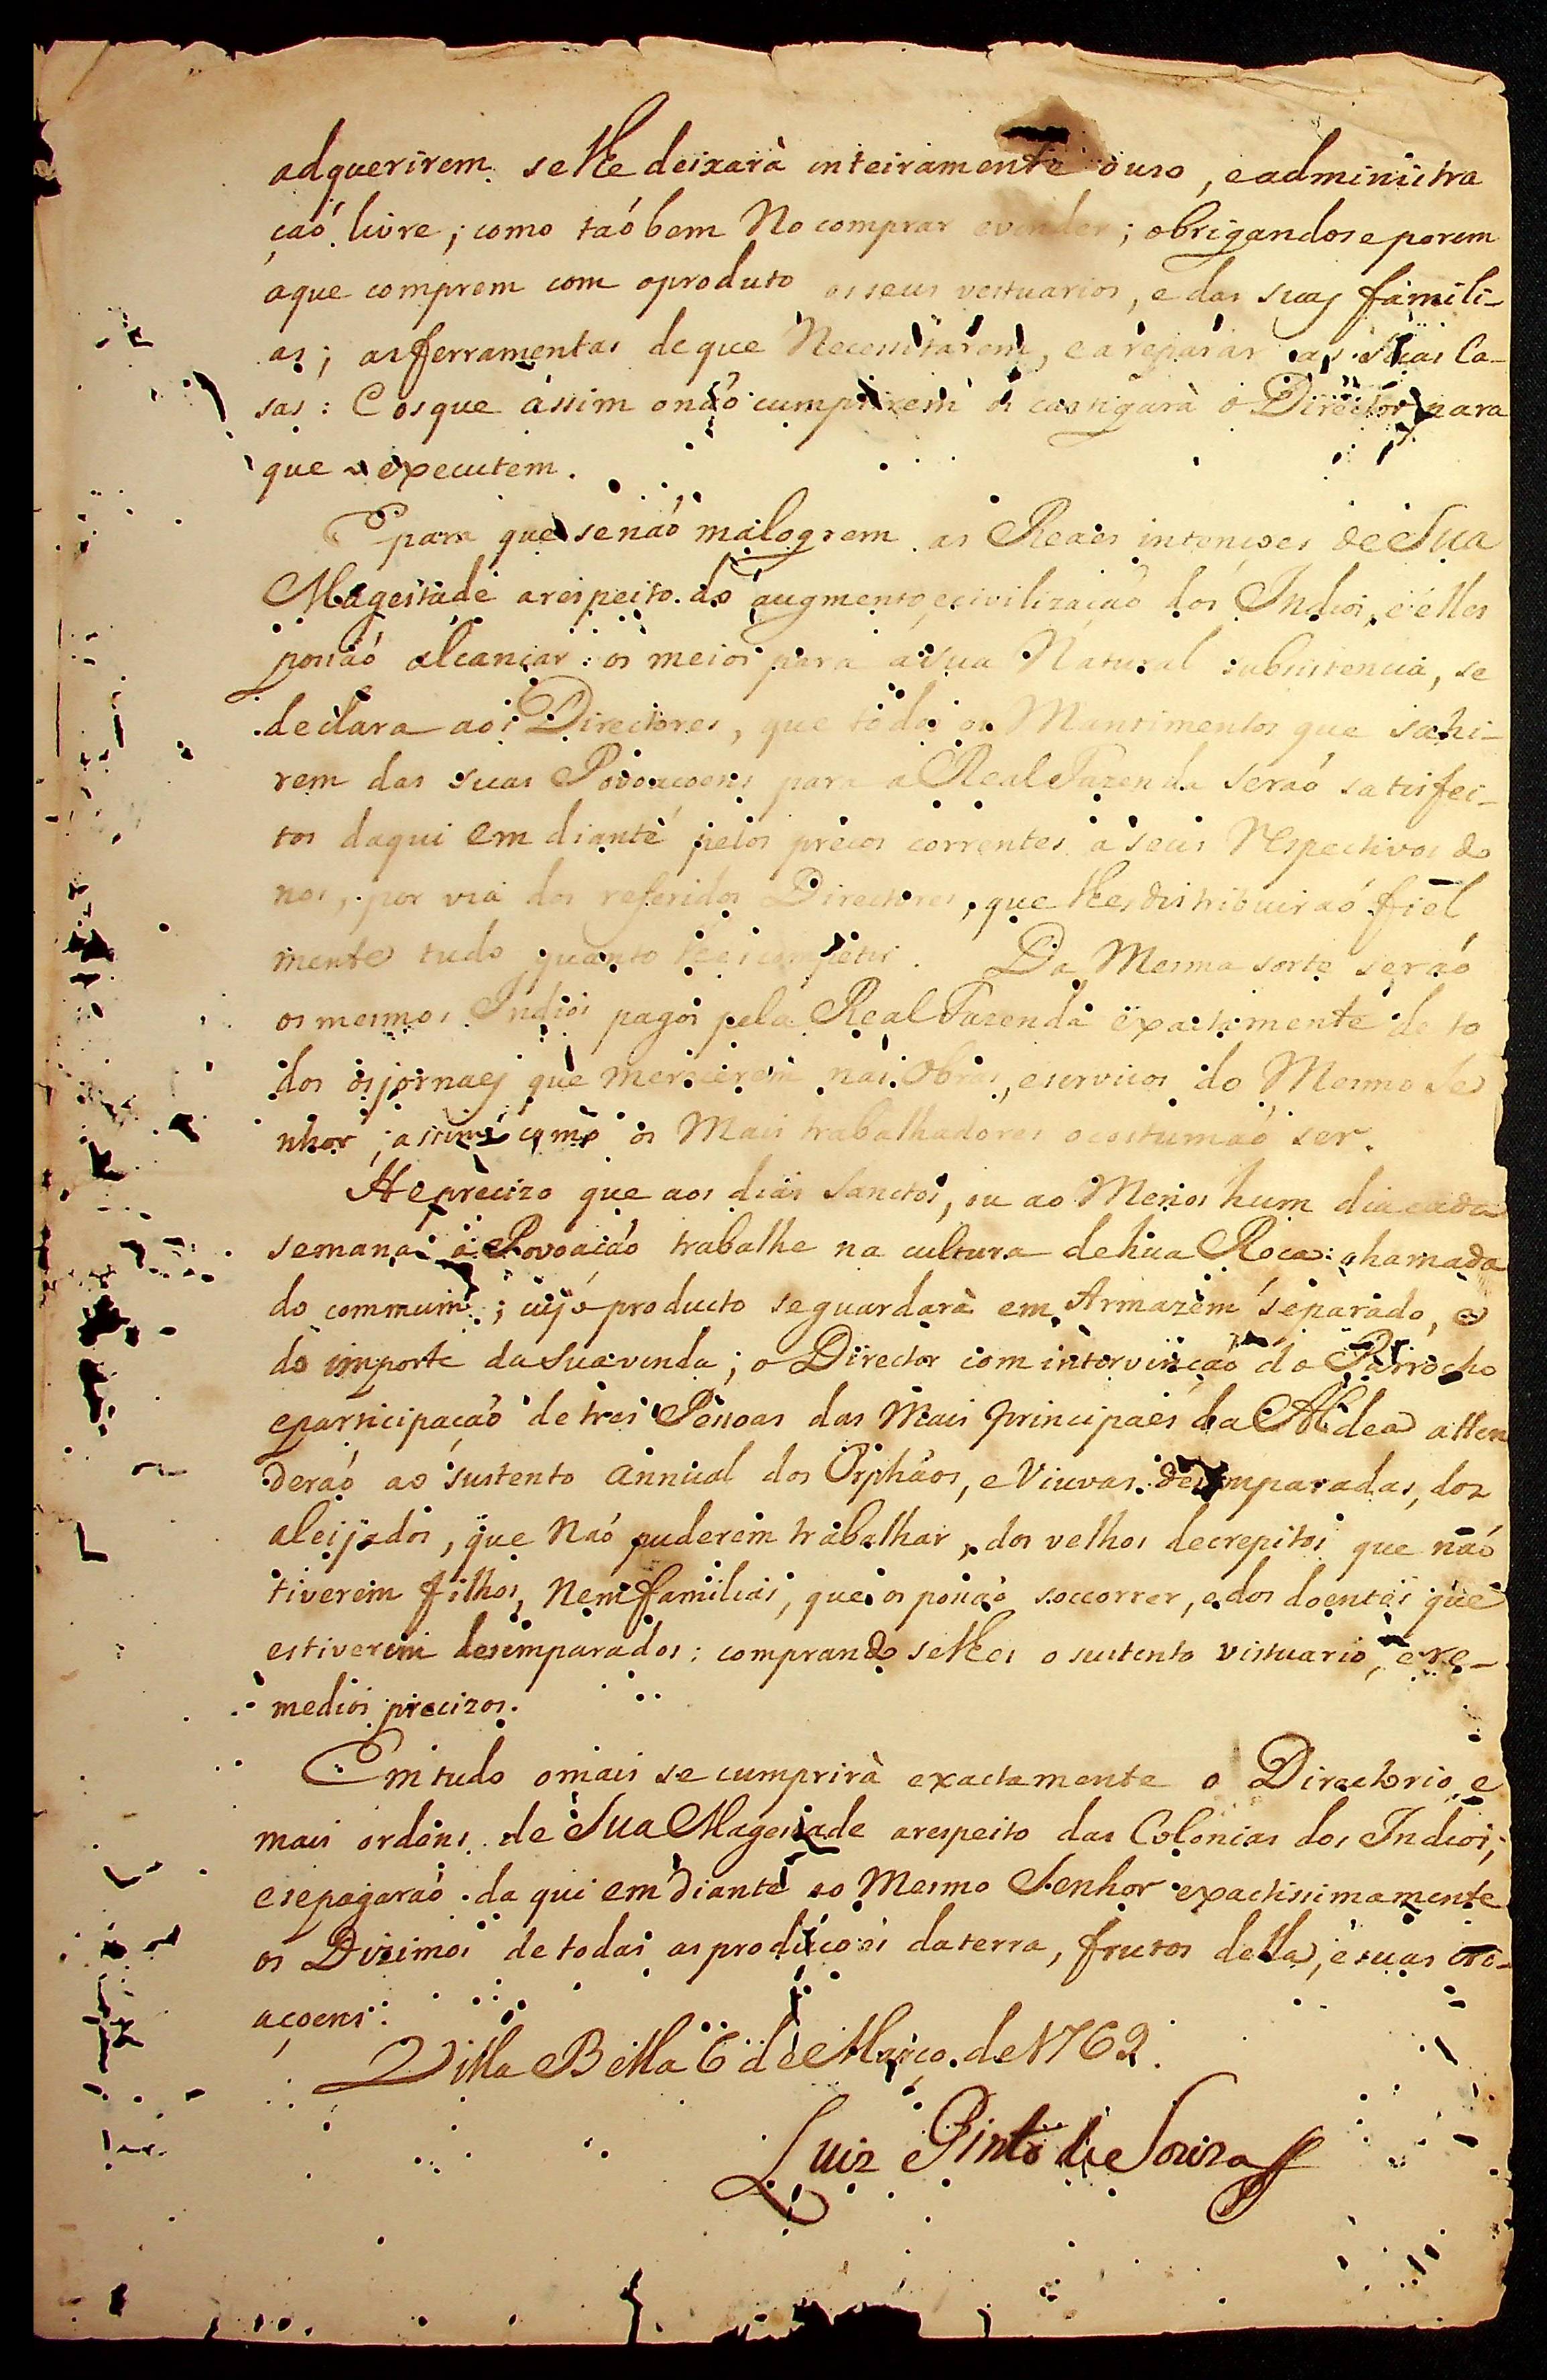 adquerirem se lhe deixarà inteiramente o uso, e administra
çaó livre; como taó bem No comprar e vender; obrigandose porem
a que comprem com o produto os seus vestuarios, e das suas famili-
as; as ferramentas de que Necessitarem, e a reparar as suas Ca-
sas: E os que assim o naó cumprirem os castigarà o Director para
que o executem.
E para que se naó malogrem as Reaes intençoes de Sua
Magestade a respeito do augmento, e civilizaçaó dos Indios, e elles
possaó alcançar os meios para a sua Natural subsistencia, se
declara aos Directores, que todos os Mantimentos que sahi-
rem das suas Povoaçoens para a Real Fazenda seraó satisfei-
tos daqui em diante pelos preços correntes a seus Respectivos do
nos, por via dos referidos Directores, que lhes distribuiraó fiel
mente tudo quanto lhes competir. Da Mesma sorte seraó
os mesmos Indios pagos pela Real Fazenda exactamente de to
dos os jornaes que merecerem nas Obras, e serviços do Mesmo Se
nhor, assim como os Mais trabalhadores o costumaó ser.
He precizo que aos dias Sanctos, ou ao Menos hum dia cada
semana a Povoaçaó trabalhe na cultura de hũa Roça chamada
do commum; cujo producto se guardarà em Armazem separado, e
do importe da sua venda; o Director com intervençaó do Parrocho
e participaçaó de tres Pessoas das Mais principaes da Aldea atten
deraó ao sustento annual dos Orphãos, e Viuvas desemparadas, dos
aleijados, que Naó puderem trabalhar, dos velhos decrepitos que naó
tiverem filhos, Nem familias, que os possaó soccorrer, e dos doentes que
estiverem desemparados: comprando se lhes o sustento vistuario, e re-
medios precizos.
Em tudo o mais se cumprirà exactamente o Directorio, e
mais ordens de Sua Magestade a respeito das Colonias dos Indios,
e se pagaraó da qui em diante ao Mesmo Senhor exactissimamente
os Dizimos de todas as produçoés da terra, frutos della, e suas cri-
açoens.
Villa Bella 6 de Março de 1769.
Luiz Pinto de Souza